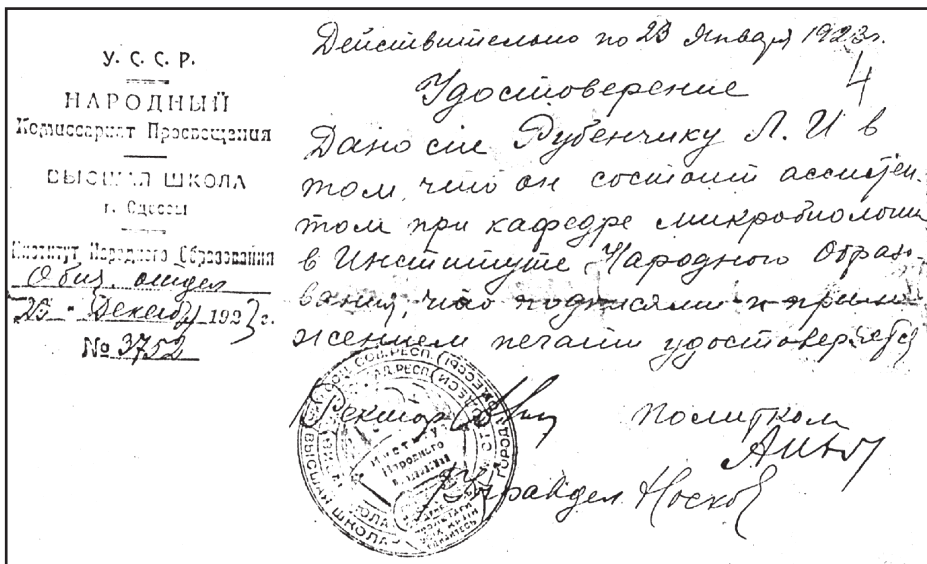 У. С. С. Р.
НАРОДНЫЙ
Комиссариат Просвещения
ВЫСШАЯ ШКОЛА
г. Одессы
Институт Народного Образования
Общ. отдел
Декабря 1923 г.
№ 3752
Действительно по 23 Января 1923г.
4
Удостоверение
Дано сие Рубенчику Л. И в
том, что он состоит ассистен-
том при кафедре микробиологии
в Институте Народного Образо-
вания, что подписями и прило-
жением печати удостоверяется
Ректор
Политком
Управдел Носков
Институт
Народного
ВЫСШАЯ ШКОЛА